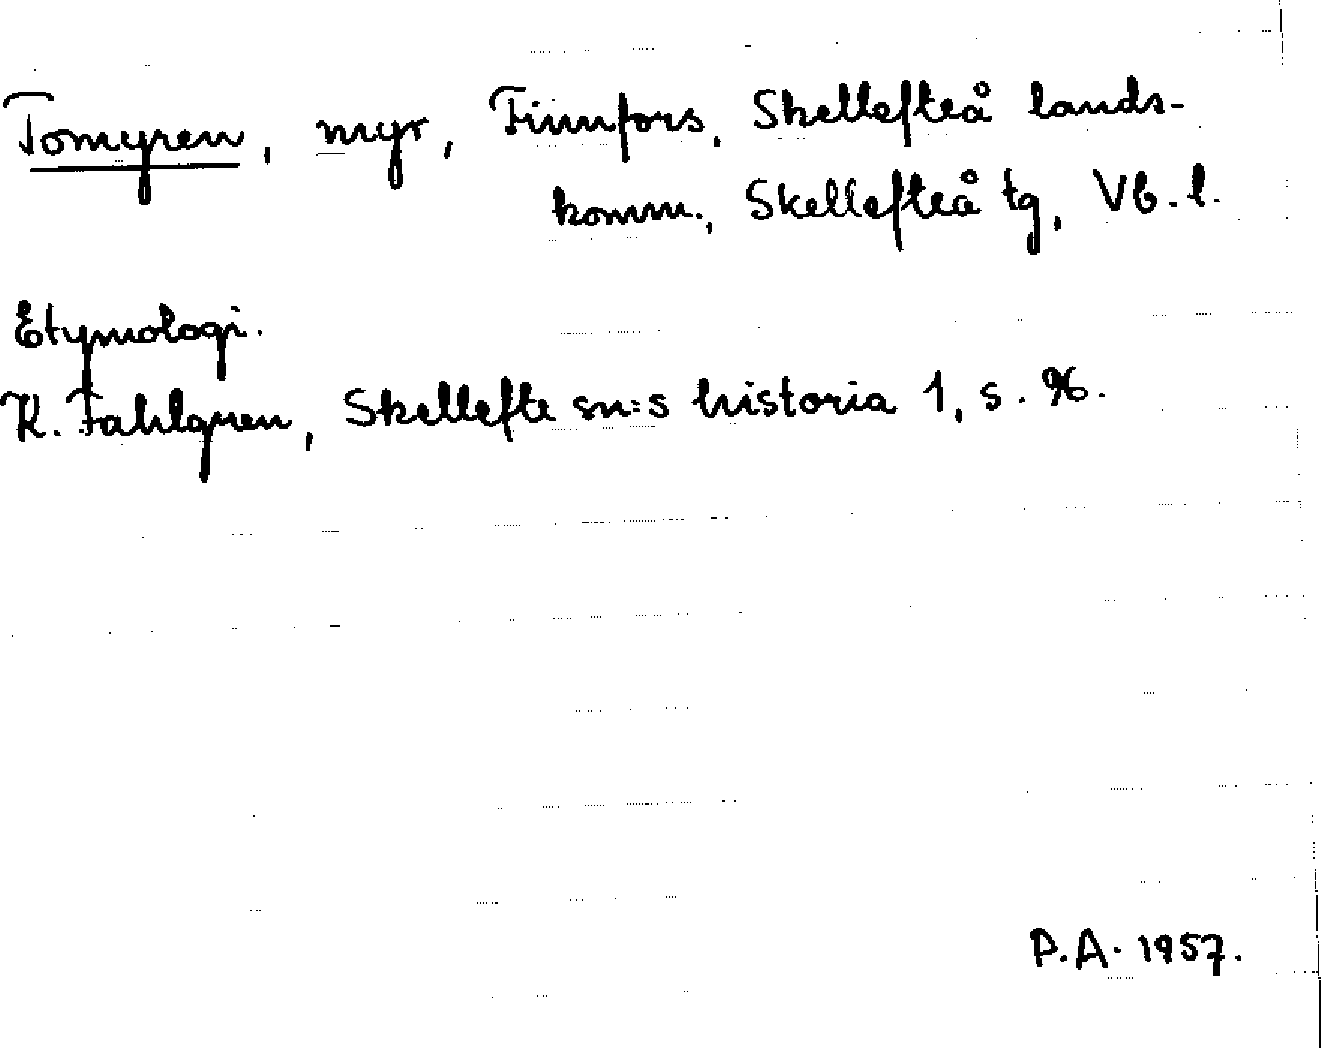 Tomyren, myr, Finnfors, Skellefteå lands-
komm., Skellefteå tg, Vb. l.
Etymologi.
K. Fahlgren, Skellefte sn:s historia 1, s. 96.
P.A. 1957.